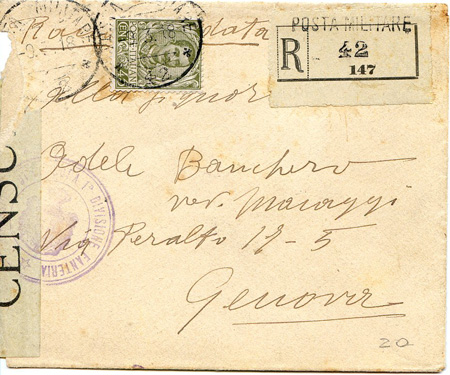 Raccomandata
POSTA MILITARE
R 42
147
Alla Signora
Adele Banchero
ved. Maraggi
Via Peralto 17-5
Genova
CENSU
DIVISIONE FANTERIA
20